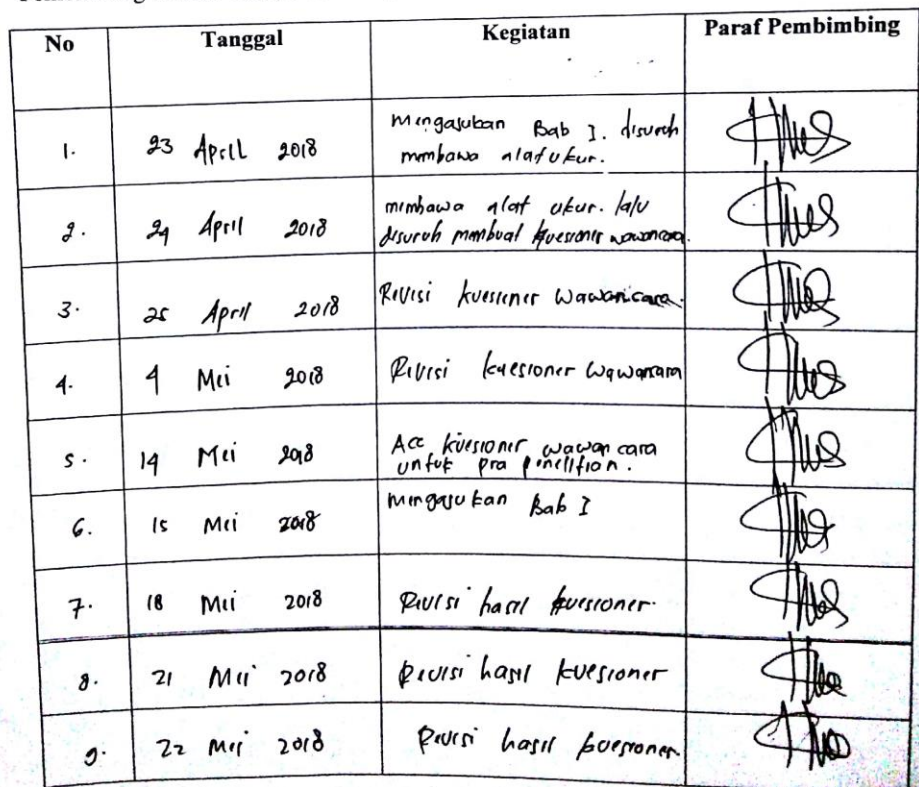 No Tanggal Kegiatan Paraf Pembimbing
1. 23 April 2018 mengajukan Bab I. disuruh
membawa alat ukur.
2. 24 April 2018 membawa alat ukur. lalu
disuruh membuat kuesioner wawancara.
3. 25 April 2018 Revisi kuesioner wawancara.
4. 4 Mei 2018 Revisi kuesioner wawancara
5. 14 Mei 2018 Acc kuesioner wawancara
untuk pra penelitian.
6. 15 Mei 2018 mengajukan Bab I
7. 18 Mei 2018 Revisi hasil kuesioner.
8. 21 Mei 2018 Revisi hasil kuesioner
9. 22 Mei 2018 Revisi hasil kuesioner.